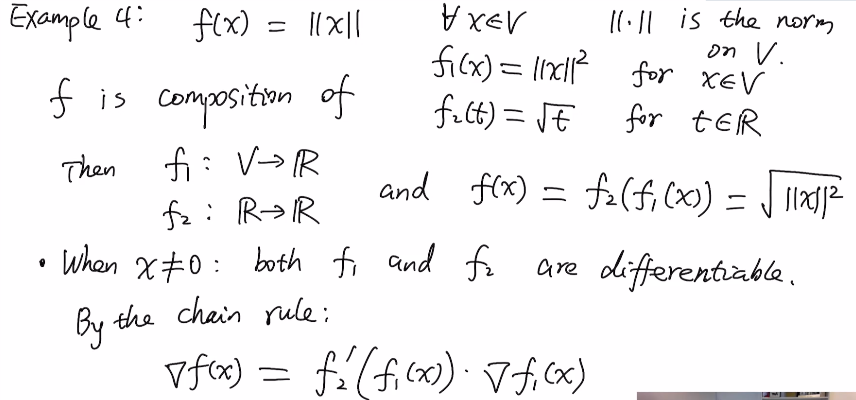 Example 4: f(x) = ||x|| ∀ x∈V ||·|| is the norm on V.
f is composition of f₁(x) = ||x||² for x∈V
f₂(t) = √t for t∈ℝ
Then f₁ : V→ℝ
f₂ : ℝ→ℝ and f(x) = f₂(f₁(x)) = √||x||²
• When x≠0 : both f₁ and f₂ are differentiable.
By the chain rule:
∇f(x) = f₂′(f₁(x)) · ∇f₁(x)